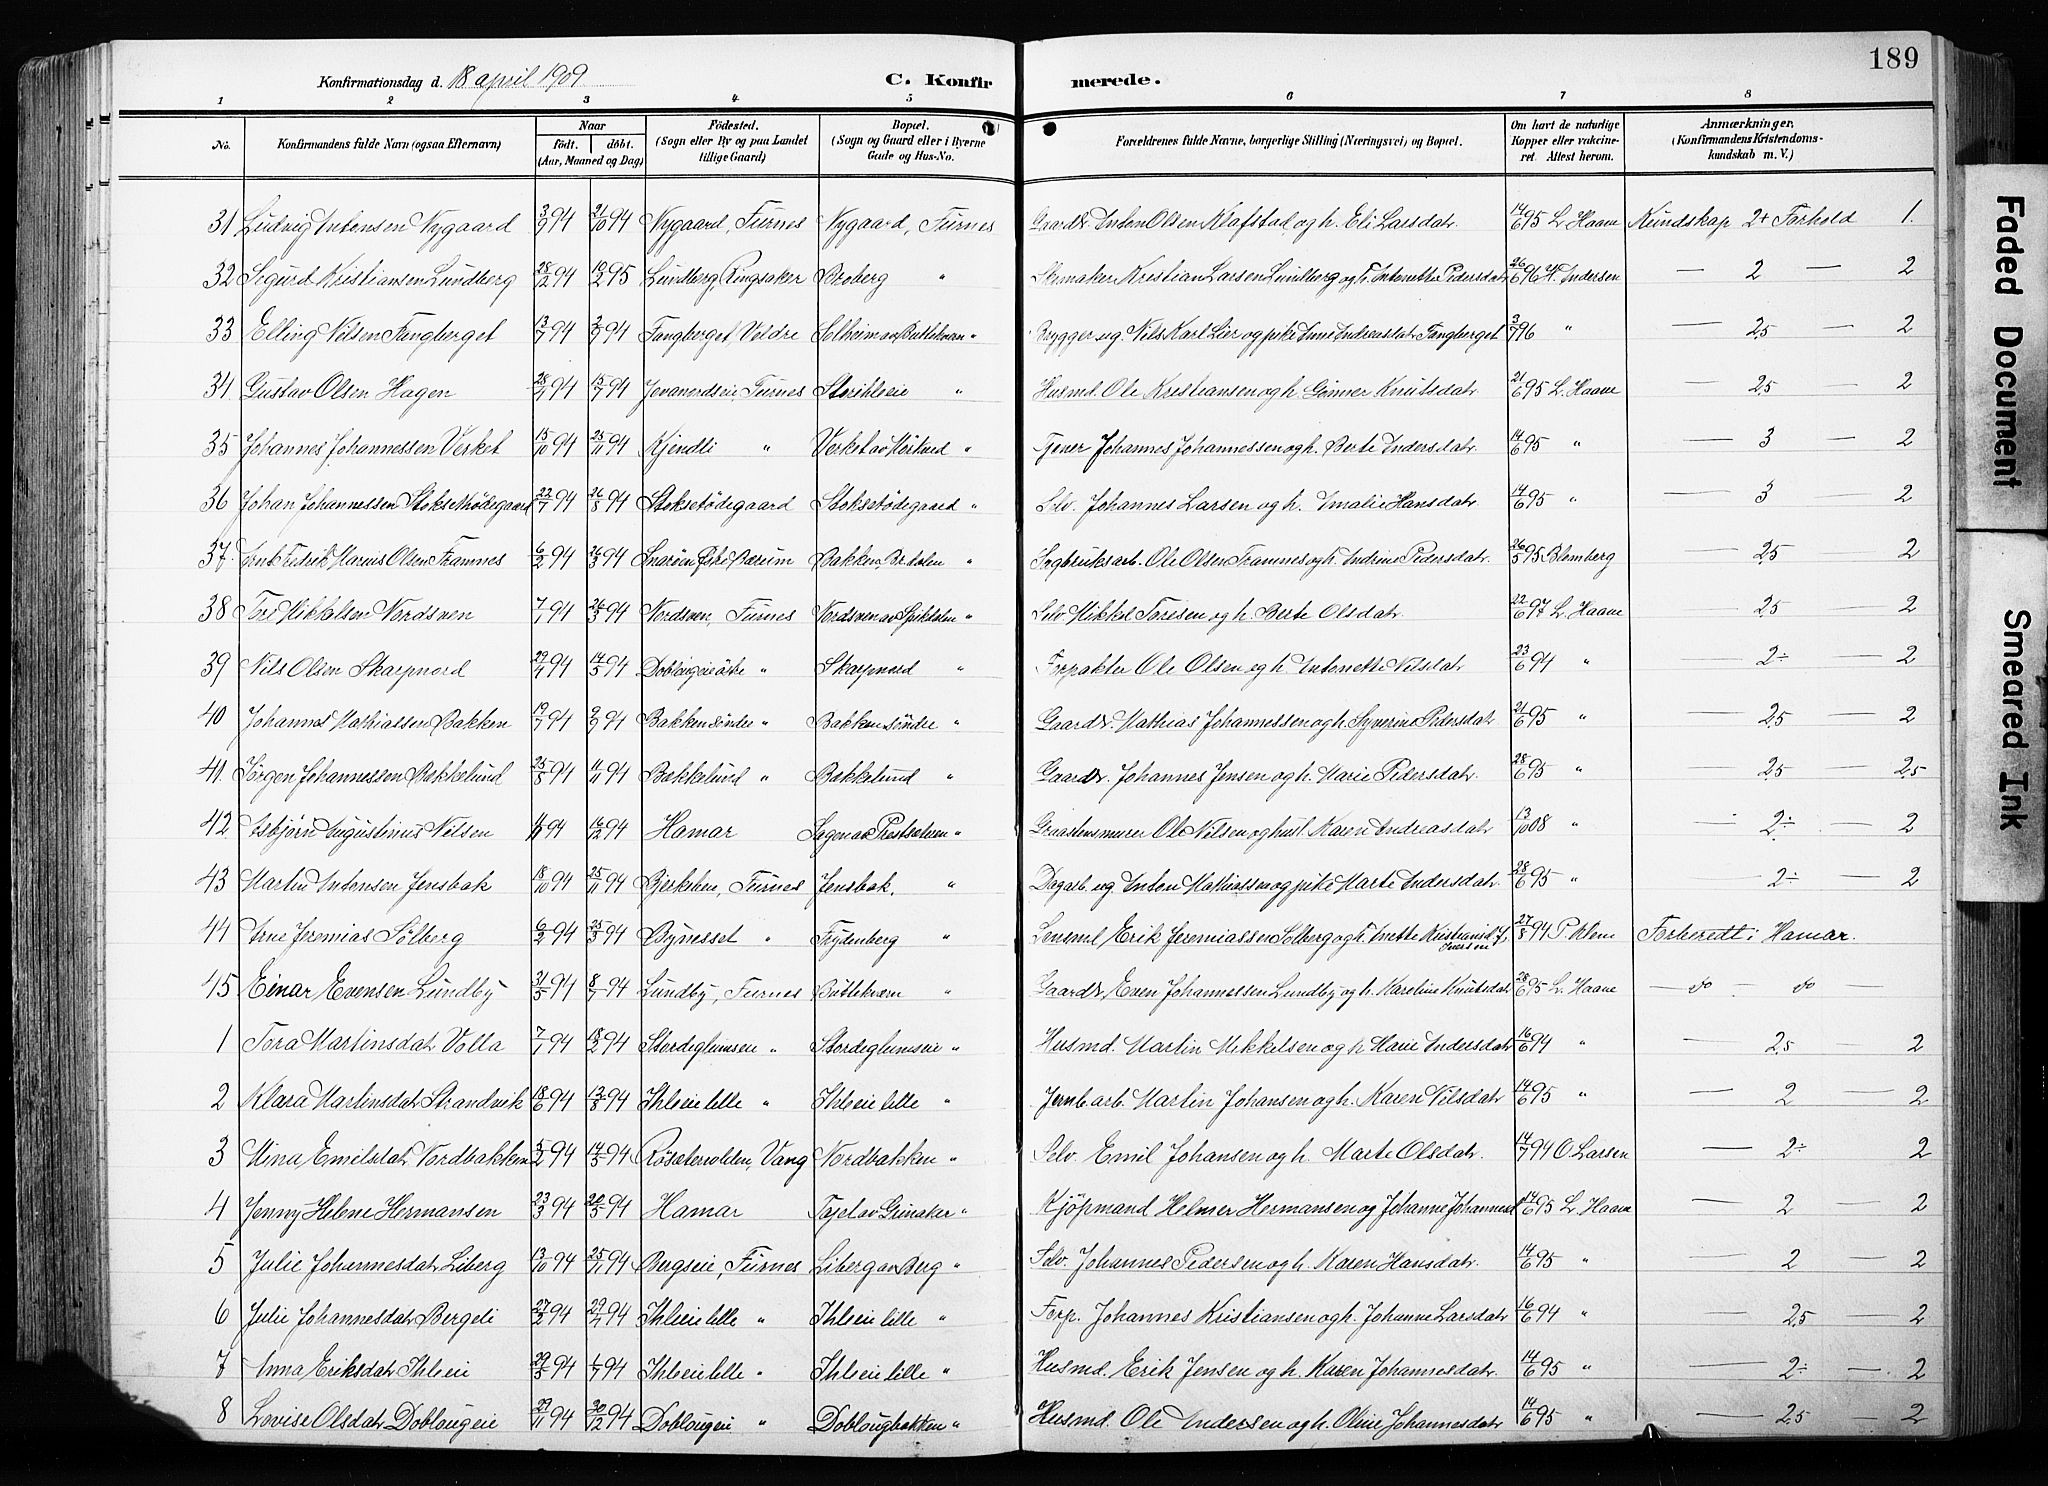 189
Konfirmationsdag d. 18 april 1909
C. Konfirmerede.
1 2 3 4 5 6 7 8
No. Konfirmandens fulde Navn (ogsaa Efternavn) Naar født. døbt. (Aar, Maaned og Dag) Fødested. (Sogn eller By og paa Landet tillige Gaard) Bopæl. (Sogn og Gaard eller i Byerne Gade og Hus-No. Forældrenes fulde Navne, borgerlige Stilling (Næringsvei) og Bopæl. Om havt de naturlige Kopper eller vakcineret. Attest herom. Anmærkninger. (Konfirmandens Kristendomskundskab m. V.)
31 Ludvig Antonsen Nygaard 3/9 94 21/10 94 Nygaard, Furnes Nygaard, Furnes Gaardbr. Anton Olsen Klafstad og h. Eli Larsdatr. 14/6 95 L. Haave Kundskap 2+ Forhold 1.
32 Sigurd Kristiansen Lundberg 28/12 94 10/2 95 Lundberg, Ringsaker Broberg " Skomaker Kristian Larsen Lundberg og h. Antonette Pedersdatr 26/6 96 H. Andersen — 2 — 2
33 Elling Nilsen Fangberget 13/7 94 Fangberget, Veldre Solheim av " Brygger ug. Nils Karl Lier og pike Anne Andreasdatr Fangberget 3/7 96 " — 2,5 — 2
34 Gustav Olsen Hagen 15/7 94 Furnes Storihleeie " Husmd. Ole Kristiansen og h. Gunner Knutsdatr 21/6 95 L. Haave — 2,5 — 2
35 Johannes Johannessen Verket 15/10 94 25/11 94 Kjendli " Verket av " Tjener Johannes Johannessen og h. Berte Andersdatr. 14/6 95 " — 3 — 2
36 Johan Johannessen Stoksetødegaard 22/7 94 26/8 94 Stoksetødegaard Stoksetødegaard " Selv. Johannes Larsen og h. Amalie Hansdatr. 14/6 95 " — 3 — 2
37 Arnt Fredrik Marius Olsen Framnes 6/2 94 26/3 94 Snarøen Østre Bærum Bakken, " Sagbruksarb. Ole Olsen Framnes og h. Andrine Pedersdatr. 26/5 95 Blomberg — 2,5 — 2
38 Tore Mikkelsen Nordsven 7/1 94 26/3 94 Nordsven, Furnes Nordsven av " Selv. Mikkel Toresen og h. Berte Olsdatr. 22/6 97 L. Haave — 2,5 — 2
39 Nils Olsen Skarpnord 29/4 94 14/5 94 Doblougeie østre " Skarpnord " Forpakter Ole Olsen og h. Antonette Nilsdatr 23/6 94 " — 2÷ — 2
40 Johannes Mathiassen Bakken 19/7 94 2/9 94 Bakken søndre " Bakken søndre " Gaardbr. Mathias Johannessen og h. Syverine Pedersdatr 21/6 95 " — 2,5 — 2
41. Jørgen Johannessen Bakkelund 25/8 94 11/11 94 Bakkelund " Bakkelund " Gaardbr. Johannes Jensen og h. Marie Pedersdatr. 28/6 95 " — 2,5 — 2,5
42. Asbjørn Augustinus Nilsen 94 16/12 94 Hamar Sagen av " Graastensmurer Ole Nilsen og hust. Karen Andreasdatr 13/10 08 " — 2÷ — 2
43 Martin Antonsen Jensbak 18/10 94 25/11 94 Furnes Jensbak, " Dagarb. ug Anton Mathiassen og pike Marte Andersdatr. 28/6 95 " — 2÷ — 2
44 Arne Jeremias Solberg 6/2 94 25/3 94 Bynesset " Frydenberg " Lensmd. Erik Jeremiassen Solberg og h. Anette 27/8 94 P. Klem Forberedt i Hamar.
45 Einar Evensen Lundby 31/5 94 8/7 94 Lundby, Furnes " Gaardbr Even Johannessen Lundby og h. Karoline Knutsdatr 28/6 95 L. Haave — do — do
1 Tora Martinsdatr Volla 7/1 94 18/2 94 Stordeglumseie " Stordeglumseie " Husmd. Martin Mikkelsen og h Marie Andersdatr 16/6 94 " — 2,5 — 2
2 Klara Martinsdatr Strandvik 18/6 94 12/8 94 Ihleeie lille " Ihleeie lille " Jernb.arb. Martin Johansen og h. Karen Nilsdatr 14/6 95 " — 2 — 2
3 Mina Emilsdatr Nordbakken 5/2 94 14/5 94 Vang Nordbakken " Selv. Emil Johansen og h. Marte Olsdatr. 14/7 94 O. Larsen — 2÷ 2
4 Jenny Helene Hermansen 23/3 94 20/5 94 Hamar av Grinaker " Kjøpmand Helmer Hermansen og Johanne 14/6 95 L. Haave — 2 — 2
5 Julie Johannesdatr Liberg 13/10 94 25/11 94 Bergseie, Furnes Liberg av Berg " Selv. Johannes Pedersen og h. Karen Hansdatr. 14/6 95 " — 2 — 2
6 Julie Johannesdatr Bergeli 27/2 94 29/4 94 Ihleeie lille " Ihleeie lille " Forp. Johannes Kristiansen og h. Johanne Larsdatr 16/6 94 " — 2,5 — 2
7 Anna Eriksdatr Ihleeie 29/5 94 Ihleeie lille " Ihleeie lille " Husmd. Erik Jensen og h. Karen Johannesdatr. 14/6 95 " — 2÷ — 2
8 Lovise Olsdatr Doblougeie 29/11 94 30/12 94 Doblougeie " Doblougbakken " Husmd. Ole Andersen og h. Oline Johannesdatr 14/6 95 " — 2,5 — 2
Faded Document
Smeared Ink